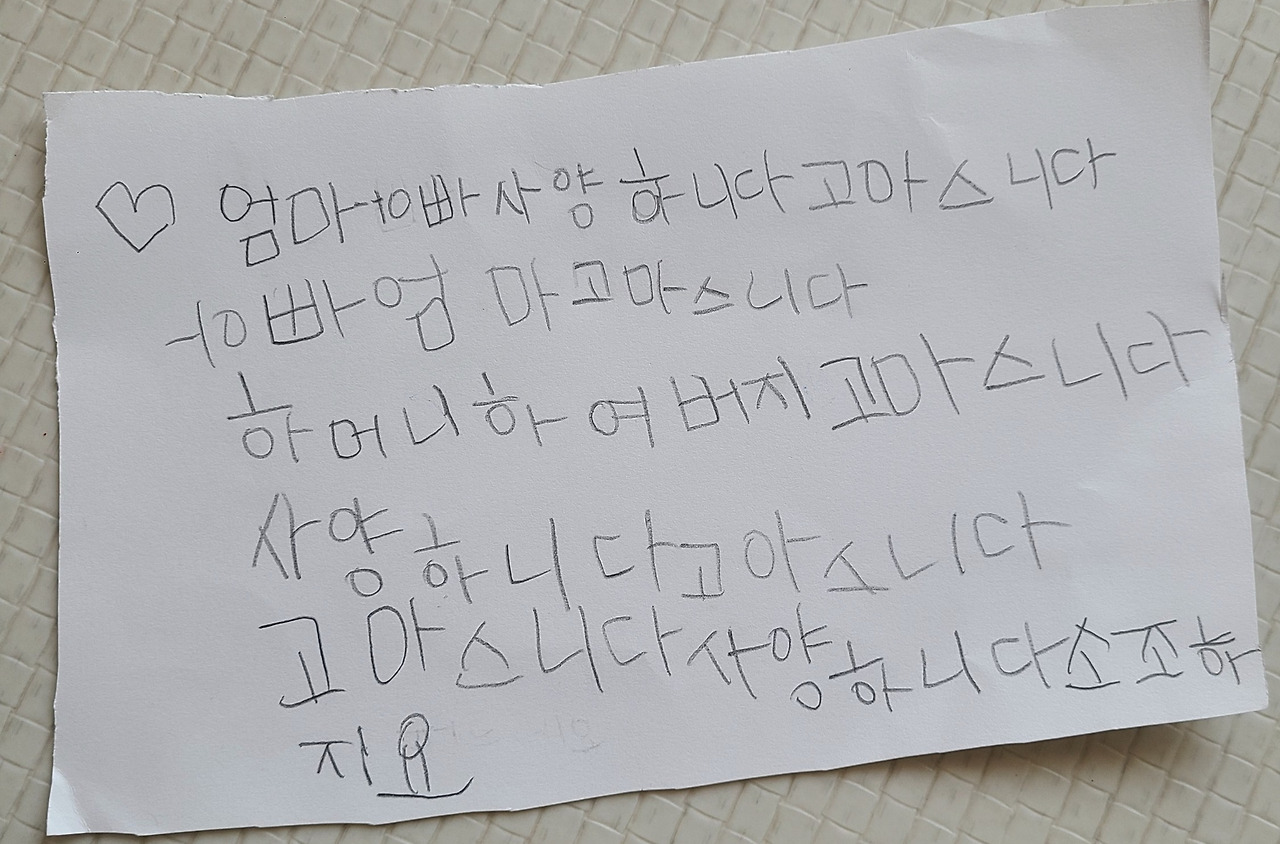 ♡ 엄마아빠사양하니다고마스니다
아빠엄마고마스니다
하머니하여버지고마스니다
사양하니다고아스니다
고마스니다사양하니다소조하
지요